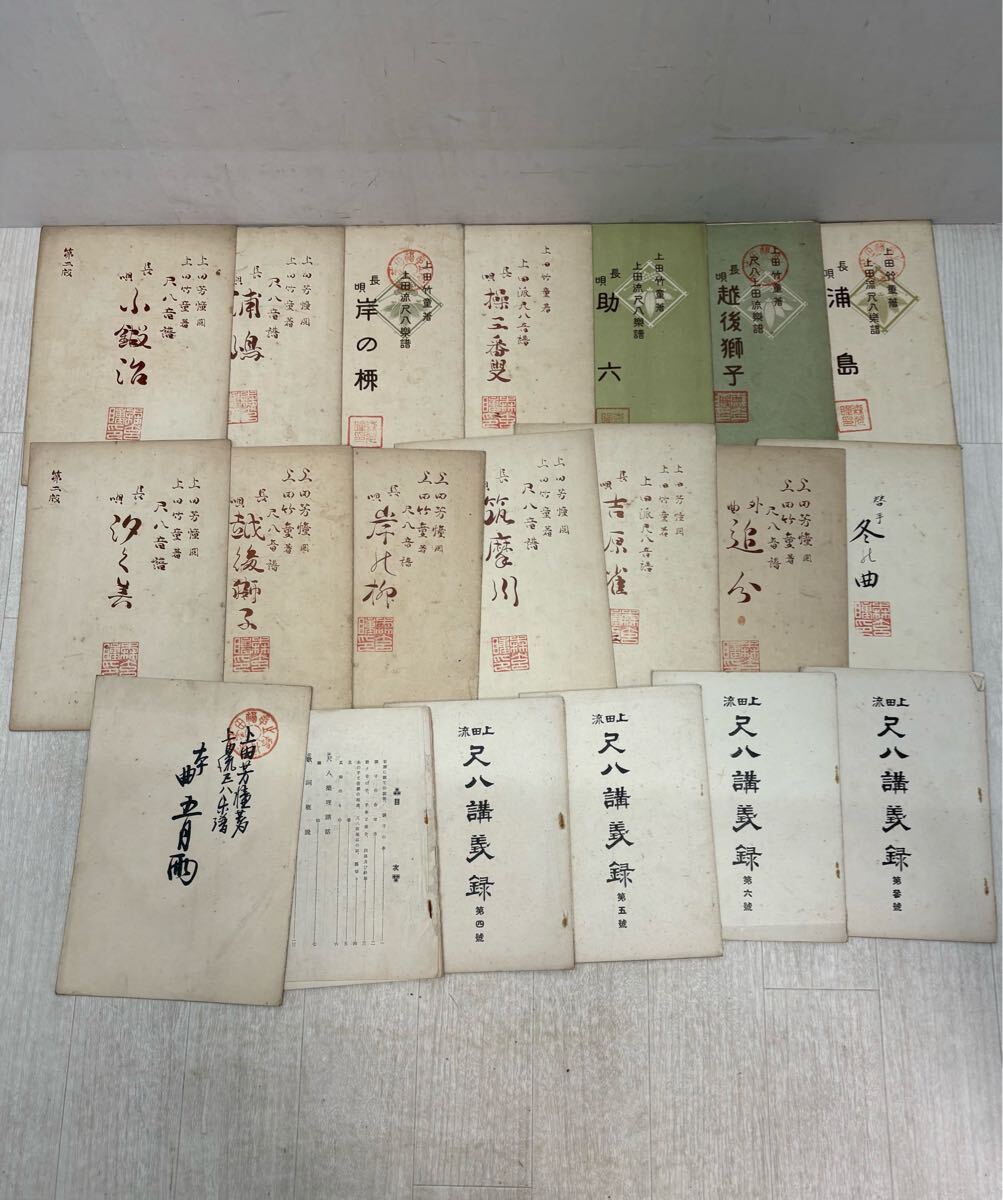 第二版
上田芳憧閲
上田竹童著
尺八音譜
長唄
小鍛治
上田芳憧閲
上田竹童著
尺八音譜
長唄
浦嶋
上田竹童著
上田流尺八樂譜
長唄
岸の柳
上田竹童著
上田派尺八音譜
長唄
操三番叟
上田竹童著
上田流尺八樂譜
長唄
助六
上田竹童著
上田流尺八樂譜
長唄
越後獅子
上田竹童著
上田流尺八樂譜
長唄
浦島
第二版
上田芳憧閲
上田竹童著
尺八音譜
長唄
汐くみ
上田芳憧閲
上田竹童著
尺八音譜
長唄
越後獅子
上田芳憧閲
上田竹童著
尺八音譜
長唄
岸の柳
上田芳憧閲
上田竹童著
尺八音譜
長唄
筑摩川
上田芳憧閲
上田派尺八音譜
長唄
吉原雀
上田芳憧閲
上田竹童著
尺八音譜
外曲
追分
替手
冬の曲
上田芳憧著
上田流尺八樂譜
本曲 五月雨
目次
尺八樂理講話
歌詞概説
上田流
尺八講義録
第四號
上田流
尺八講義録
第五號
上田流
尺八講義録
第六號
上田流
尺八講義録
第参號